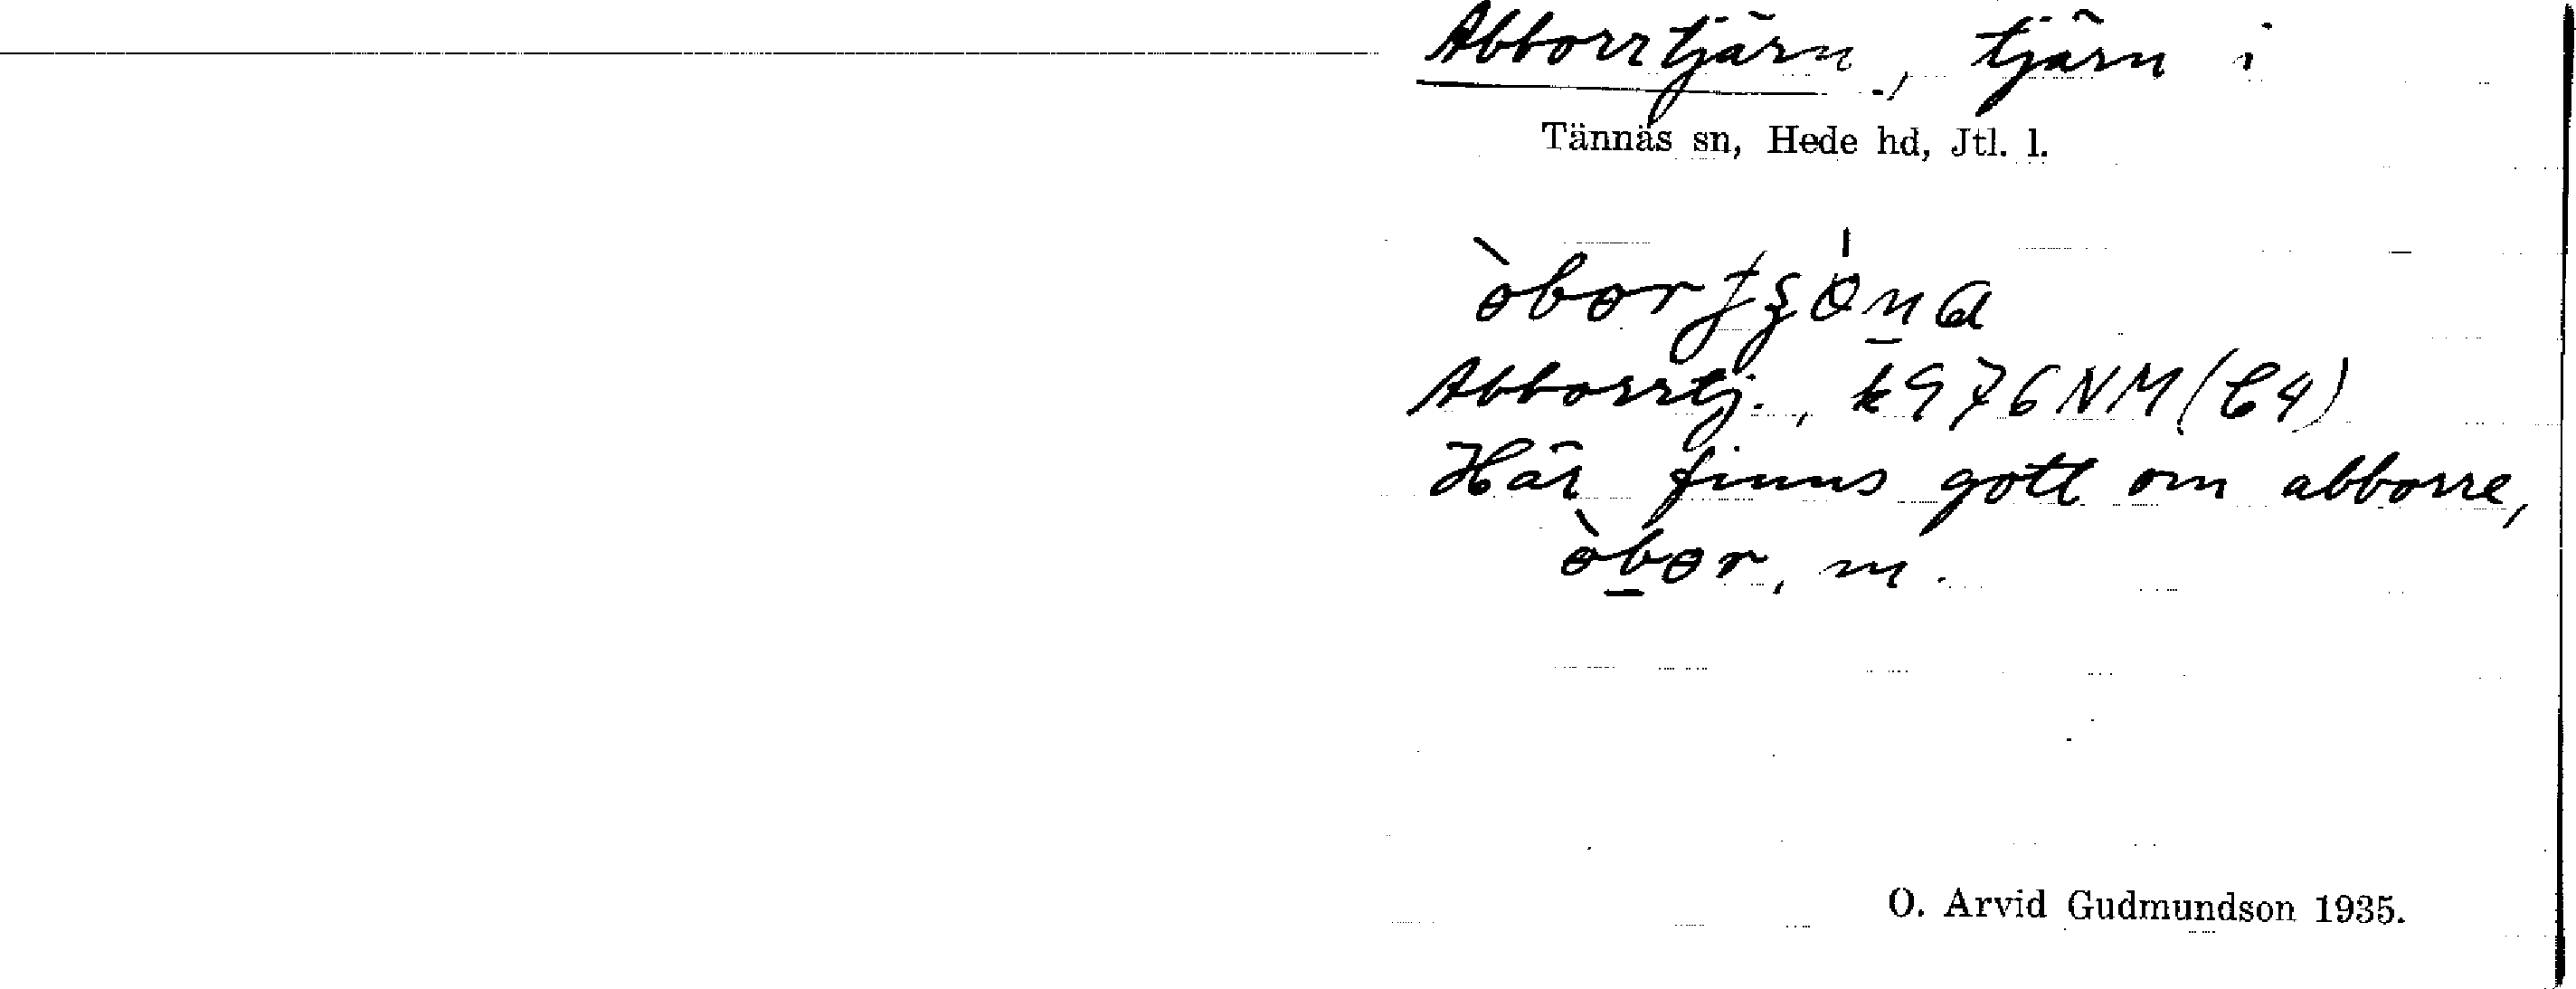 Abborrtjärn, tjärn i
Tännäs sn, Hede hd, Jtl. l.
Abborrtj., k976NM(C4)
Här finns gott om abborre,
òbɵr, m.
O. Arvid Gudmundson 1935.